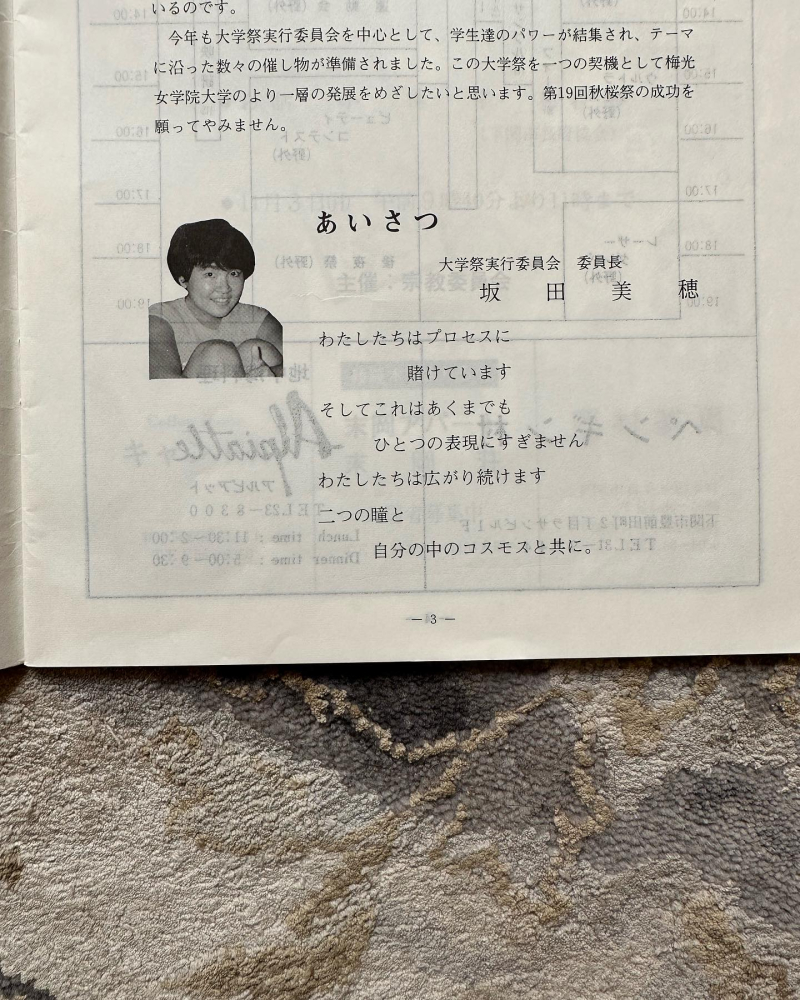 いるのです。
今年も大学祭実行委員会を中心として、学生達のパワーが結集され、テーマ
に沿った数々の催し物が準備されました。この大学祭を一つの契機として梅光
女学院大学のより一層の発展をめざしたいと思います。第19回秋桜祭の成功を
願ってやみません。
あいさつ
大学祭実行委員会 委員長
坂田美穂
わたしたちはプロセスに
賭けています
そしてこれはあくまでも
ひとつの表現にすぎません
わたしたちは広がり続けます
二つの瞳と
自分の中のコスモスと共に。
— 3 —